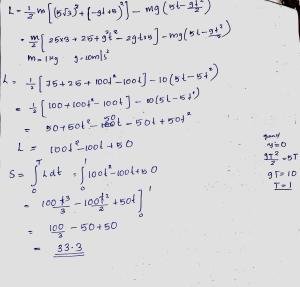 L = m/2 m[(5√3)² + [-gt+5]²] - mg(5t - gt²/2)
= m/2 [25×3 + 25 + g²t² - 2gt×5] - mg(5t - gt²/2)
m = 1kg g = 10m/s²
L = 1/2 [75 + 25 + 100t² - 100t] - 10(5t - 5t²)
= 1/2 [100 + 100t² - 100t] - 10(5t - 5t²)
= 50 + 50t² - 50t - 50t + 50t²
L = 100t² - 100t + 50
S = ∫₀ᵀ L dt = ∫₀¹ 100t² - 100t + 50
= 100t³/3 - 100t²/2 + 50t]₀¹
= 100/3 - 50 + 50
= 33.3
y = 0
gT²/2 = 5T
gT = 10
T = 1